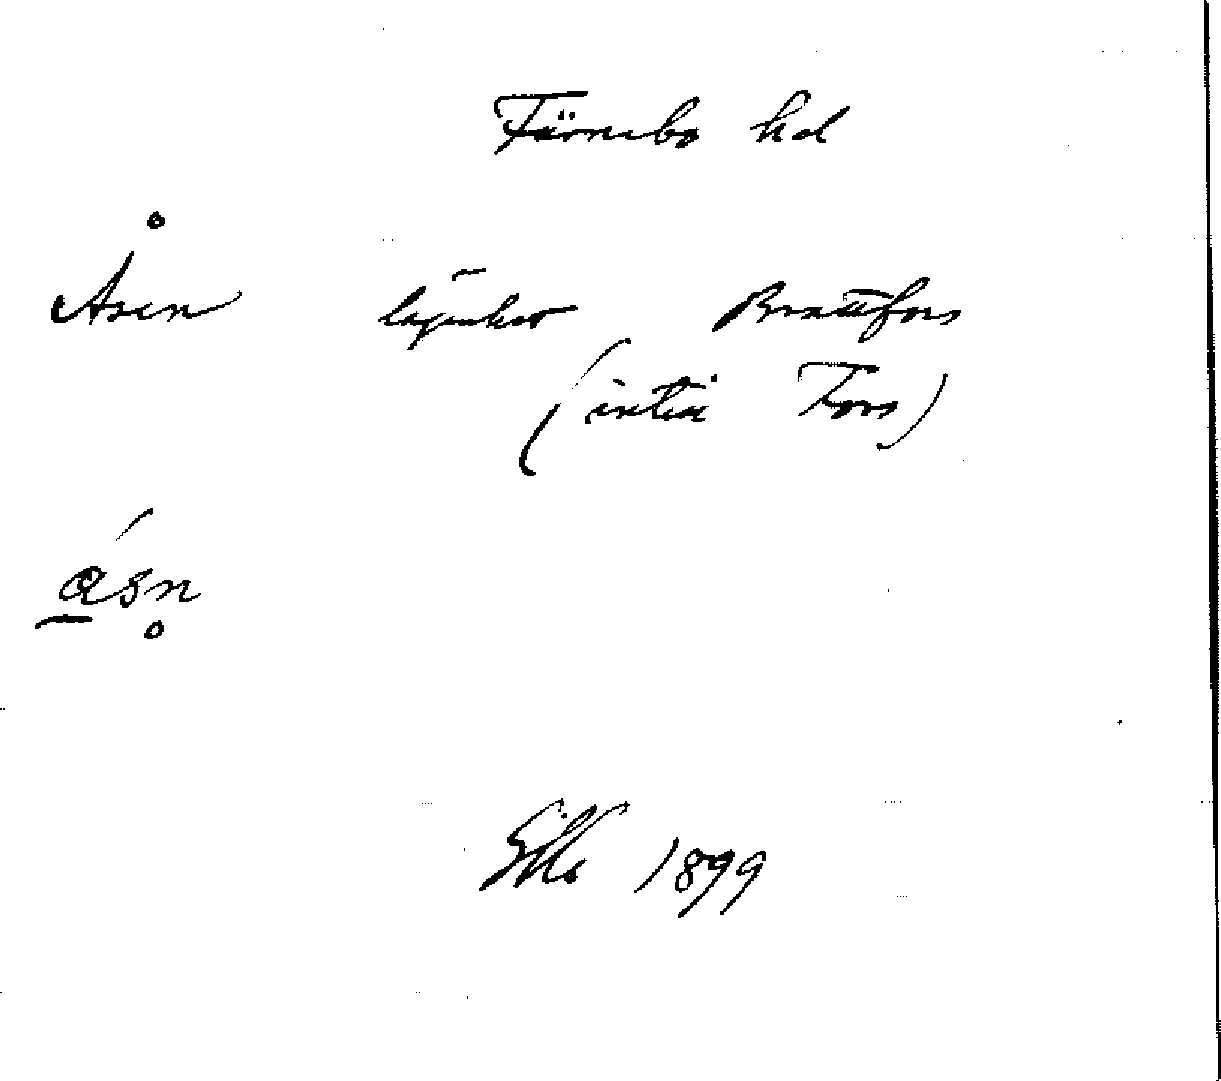 Färnebo hd
Åsen lägenhet Brattfors
(intill Fors)
åsn̥
1899